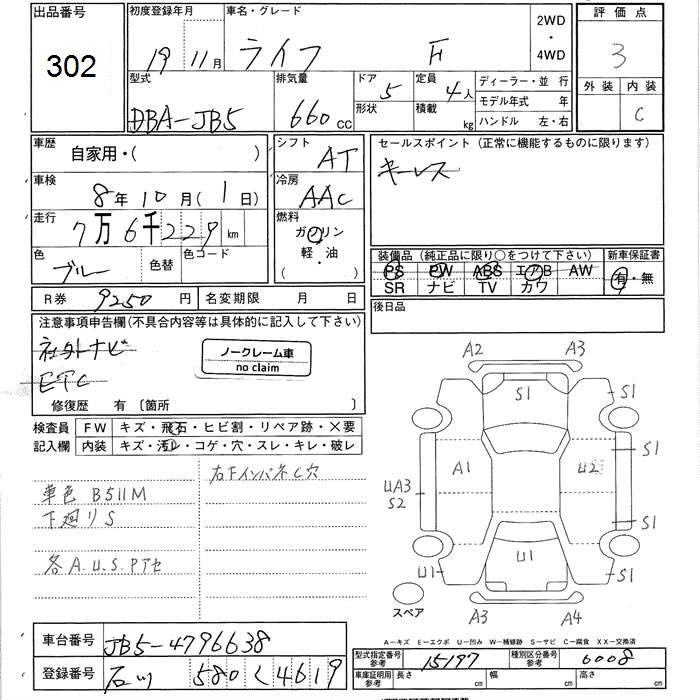 出品番号
302
初度登録年月
19 11月
車名・グレード
ライフ F
2WD
・
4WD
評価点
3
外装 内装
C
型式
DBA-JB5
排気量
660 cc
ドア
5
形状
定員
4人
積載
kg
ディーラー・並 行
モデル年式 年
ハンドル 左・右
車歴
自家用・( )
シフト
AT
セールスポイント (正常に機能するものに限ります)
キーレス
車検
8年10月(1日)
冷房
AAC
走行
7万6千229km
燃料
ガソリン
軽・油
( )
色
ブルー
色替
色コード
装備品 (純正品に限り○をつけて下さい)
PS PW ABS エアB AW
SR ナビ TV カワ
新車保証書
有・無
R券 9250円
名変期限 月 日
後日品
注意事項申告欄(不具合内容等は具体的に記入して下さい)
社外ナビ
ETC
ノークレーム車
no claim
修復歴 有 〔箇所 〕
検査員
記入欄
FW キズ・飛石・ヒビ割・リペア跡・X要
内装 キズ・汚レ・コゲ・穴・スレ・キレ・破レ
右下インパネC穴
車色 B511M
下廻りS
各A.U.S.Pアセ
A2 A3
S1 S1
S1
A1 U2
UA3
S2
S1
U1 U1 S1
スペア
A3 A4
A-キズ E-エクボ U-凹み W-補修跡 S-サビ C-腐食 XX-交換済
車台番号
JB5-4796638
登録番号
石川 580 く 4619
型式指定番号
参考
15197
種別区分番号
参考
6008
車庫証明用
参考
長さ cm
幅 cm
高さ cm